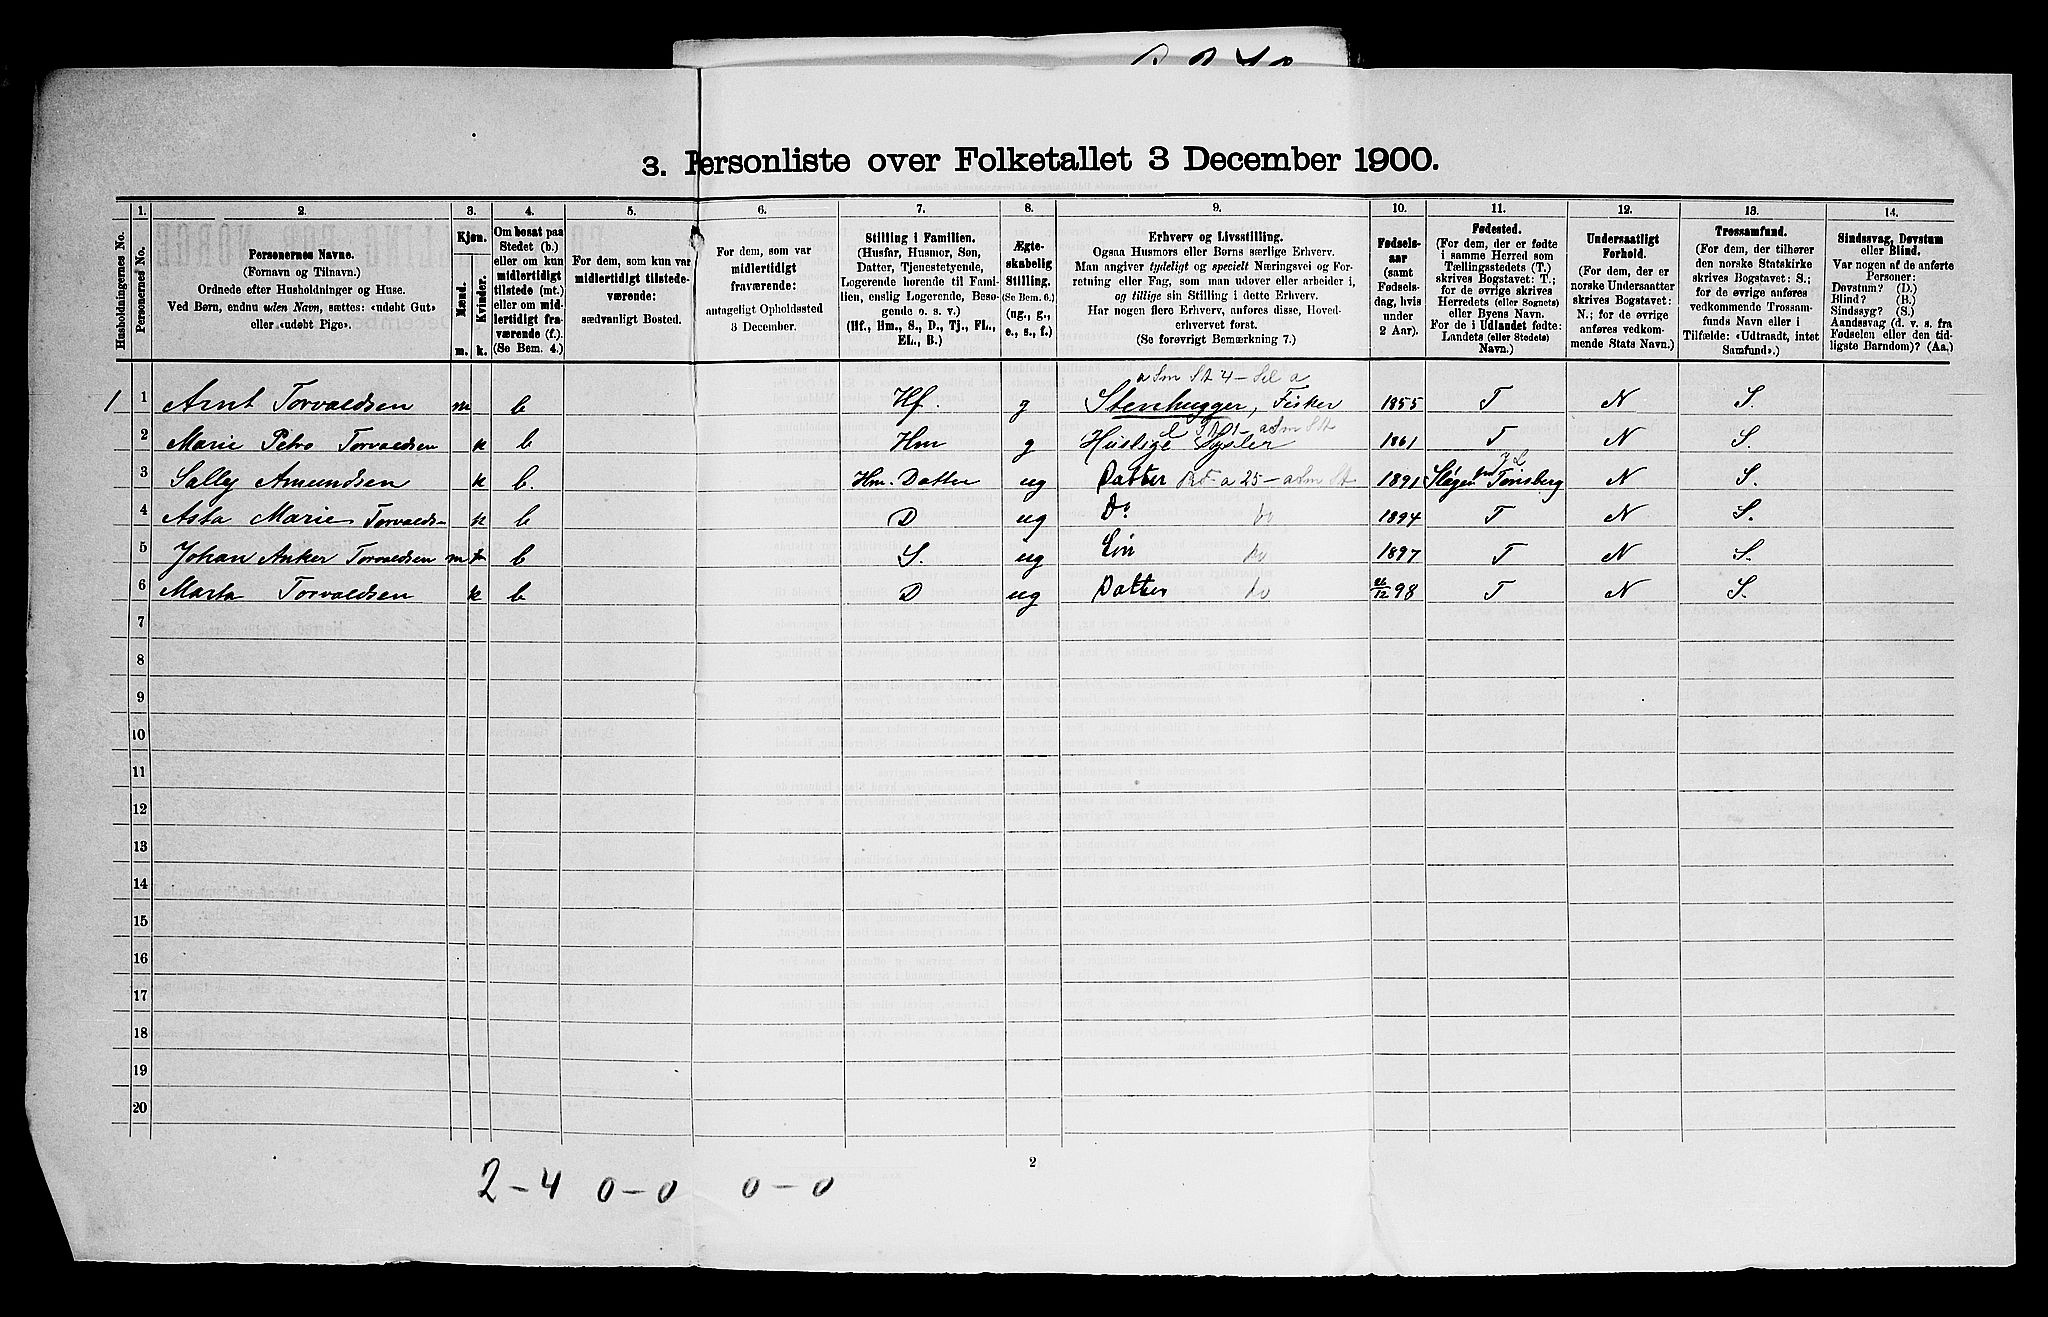 3. Personliste over Folketallet 3 December 1900.
Husholdningernes No.
Personernes No.
1. 2. 3. 4. 5. 6. 7. 8. 9. 10. 11. 12. 13. 14.
Personernes Navne.
(Fornavn og Tilnavn.)
Ordnede efter Husholdninger og Huse.
Ved Børn, endnu uden Navn, sættes: «udøbt Gut»
eller «udøbt Pige».
Kjøn.
Mænd.
Kvinder.
m. k.
Om bosat paa
Stedet (b.)
eller om kun
midlertidigt
tilstede (mt.)
eller om mid-
lertidigt fra-
værende (f.)
(Se Bem. 4.)
For dem, som kun var
midlertidigt tilstede-
værende:
sædvanligt Bosted.
For dem, som var
midlertidigt
fraværende:
antageligt Opholdssted
3 December.
Stilling i Familien.
(Husfar, Husmor, Søn,
Datter, Tjenestetyende,
Logerende hørende til Fami-
lien, enslig Logerende, Besø-
gende o. s. v.)
(Hf., Hm., S., D., Tj., FL.,
EL., B.)
Ægte-
skabelig
Stilling.
(Se Bem. 6.)
(ug., g.,
e., s., f.)
Erhverv og Livsstilling.
Ogsaa Husmors eller Børns særlige Erhverv.
Man angiver tydeligt og specielt Næringsvei og For-
retning eller Fag, som man udøver eller arbeider i,
og tillige sin Stilling i dette Erhverv.
Har nogen flere Erhverv, anføres disse, Hoved-
erhvervet først.
(Se forøvrigt Bemærkning 7.)
Fødsels-
aar
(samt
Fødsels-
dag, hvis
under
2 Aar).
Fødested.
(For dem, der er fødte
i samme Herred som
Tællingsstedets (T.)
skrives Bogstavet: T.;
for de øvrige skrives
Herredets (eller Sognets)
eller Byens Navn.
For de i Udlandet fødte:
Landets (eller Stedets)
Navn.)
Undersaatligt
Forhold.
(For dem, der er
norske Undersaatter
skrives Bogstavet:
N.; for de øvrige
anføres vedkom-
mende Stats Navn.)
Trossamfund.
(For dem, der tilhører
den norske Statskirke
skrives Bogstavet: S.;
for de øvrige anføres
vedkommende Trossam-
funds Navn eller i
Tilfælde: «Udtraadt, intet
Samfund».)
Sindssvag, Døvstum
eller Blind.
Var nogen af de anførte
Personer:
Døvstum? (D.)
Blind? (B.)
Sindssyg? (S.)
Aandssvag (d. v. s. fra
Fødselen eller den tid-
ligste Barndom)? (Aa.)
1 1 Arnt Torvaldsen m b Hf. g Stenhugger, Fisker 1855 T N S.
2 Marie Petro Torvaldsen k b Hm g Huslige Sysler 1861 T N S.
3 Sally Amundsen k b. Hm. Datter ug Datter 1891 Slagen Tønsberg N S.
4 Asta Marie Torvalds- k b D ug Do 1894 T N S.
5 Johan Anker Torvaldsen m b S. ug 1897 T N S.
6 Marta Torvaldsen k b D ug Datter 98 T N S.
7
8
9
10
11
12
13
14
15
16
17
18
19
20
2
2-4 0-0 0-0